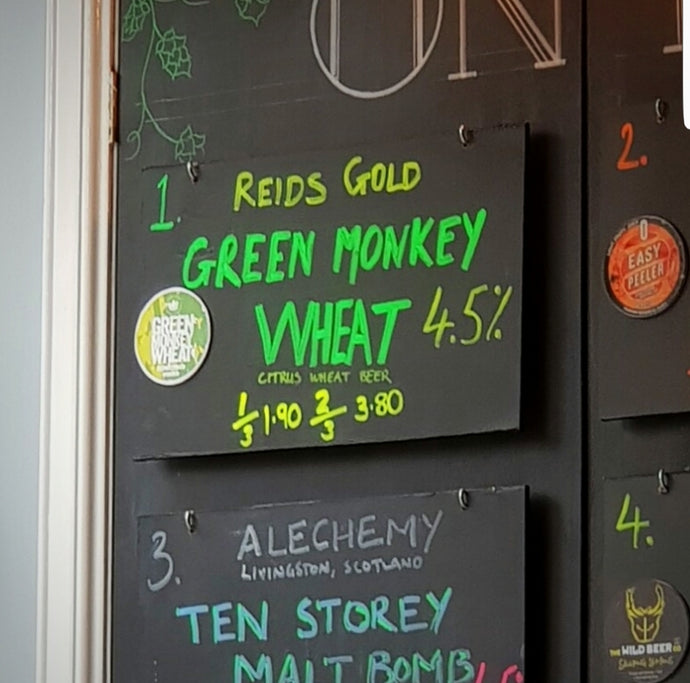 ON
1.
REIDS GOLD
GREEN MONKEY
WHEAT 4.5%
CITRUS WHEAT BEER
1/3 1.90 2/3 3.80
GREEN
MONKEY
WHEAT
3.
ALECHEMY
LIVINGSTON, SCOTLAND
TEN STOREY
MALT BOMB
2.
EASY
PEELER
4.
THE WILD BEER CO